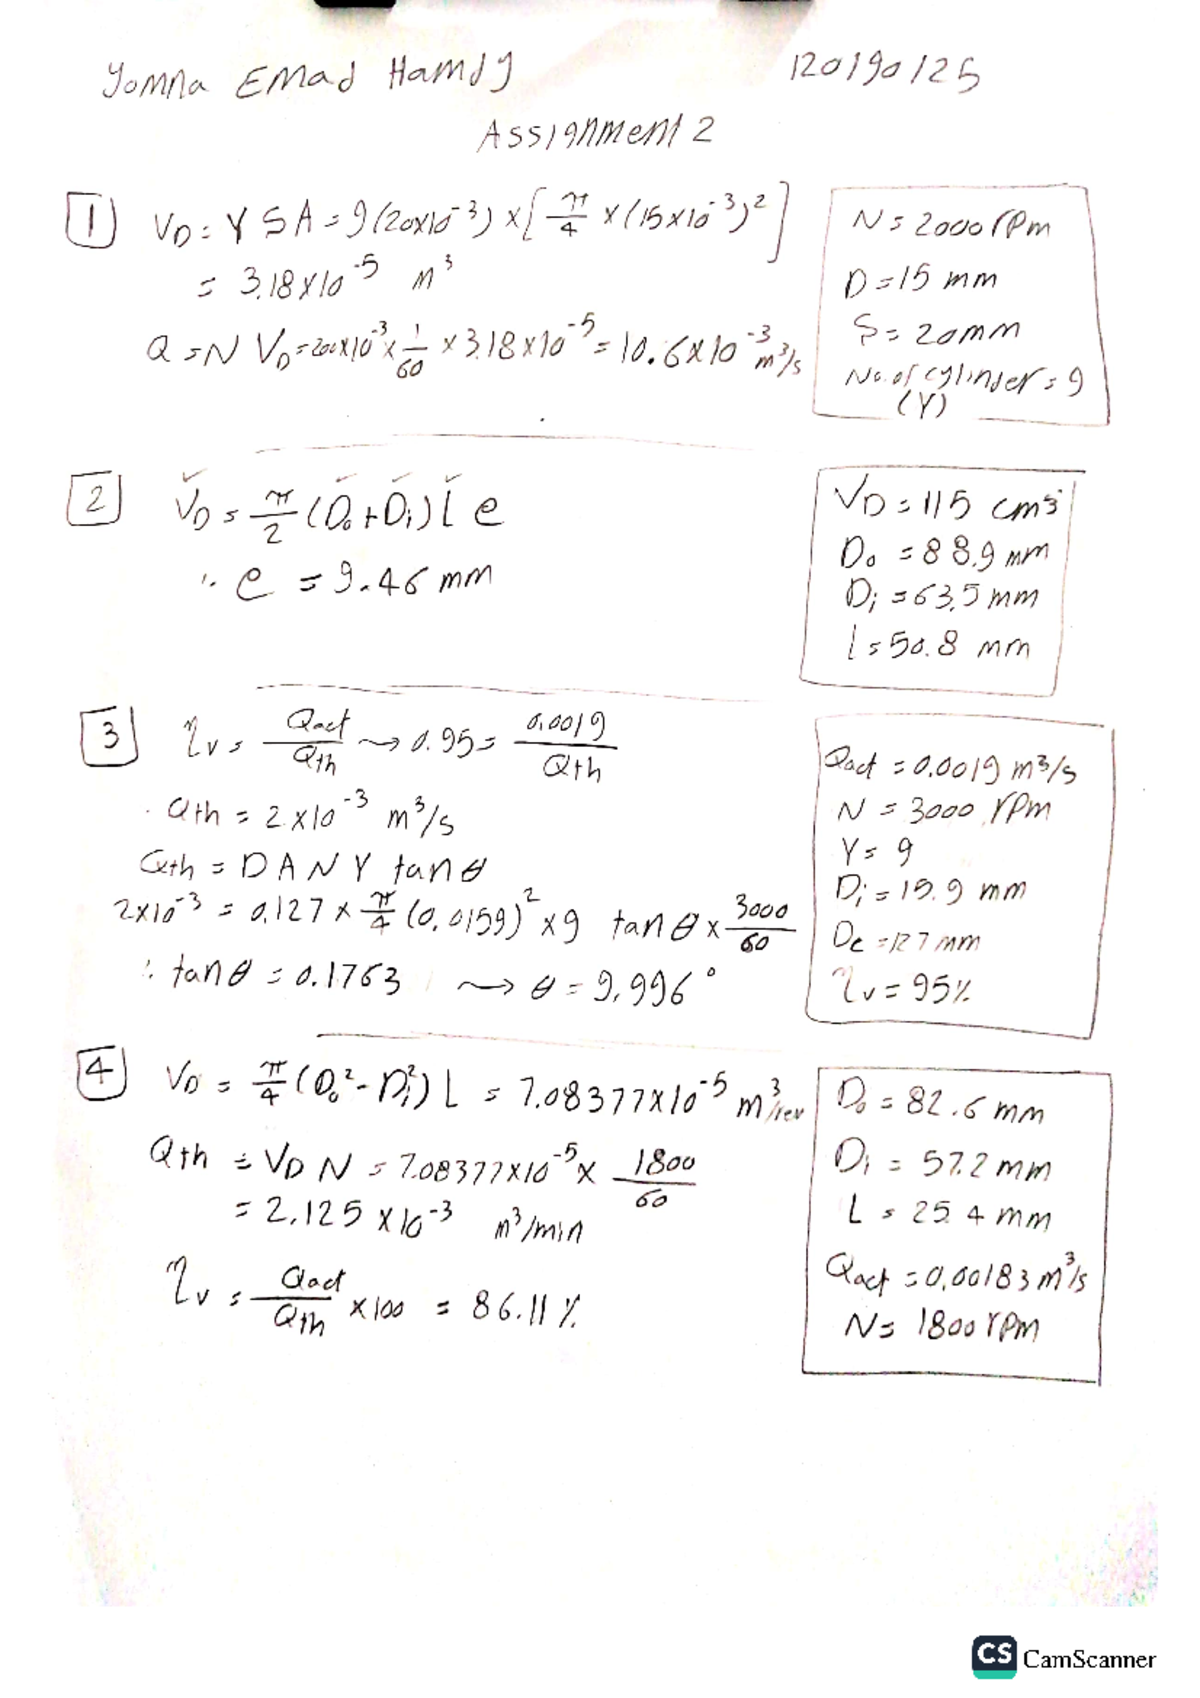 Yomna Emad Hamdy 120190125
Assignment 2
1 V_D = Y S A = 9(20x10^-3) x [π/4 x (15x10^-3)^2]
= 3.18x10^-5 m^3
Q = N V_D = 200x10^-3 x 1/60 x 3.18x10^-5 = 10.6x10^-3 m^3/s
N = 2000 rpm
D = 15 mm
S = 20mm
No. of cylinder = 9
(Y)
2 V_D = π/2 (D_o + D_i) L e
∴ e = 9.46 mm
V_D = 115 cm^3
D_o = 88.9 mm
D_i = 63.5 mm
l = 50.8 mm
3 η_v = Qact/Qth → 0.95 = 0.0019/Qth
∴ Qth = 2x10^-3 m^3/s
Qth = D A N Y tan θ
2x10^-3 = 0.127 x π/4 (0.0159)^2 x 9 tan θ x 3000/60
∴ tan θ = 0.1763 → θ = 9.996°
Qact = 0.0019 m^3/s
N = 3000 rpm
Y = 9
D_i = 15.9 mm
D_c = 127 mm
η_v = 95%
4 V_D = π/4 (D_o^2 - D_i^2) L = 7.08377x10^-5 m^3/rev
Qth = V_D N = 7.08377x10^-5 x 1800/60
= 2.125 x10^-3 m^3/min
η_v = Qact/Qth x100 = 86.11 %
D_o = 82.6 mm
D_i = 57.2 mm
L = 25.4 mm
Qact = 0.00183 m^3/s
N = 1800 rpm
CS CamScanner